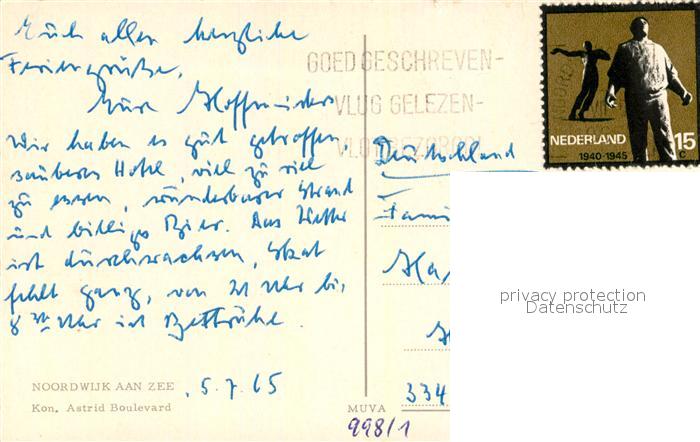 Euch allen herzliche
Feriengrüße,
Eure Hoffmeisters
Wir haben es gut getroffen,
sauberes Hotel, viel zu viel
zu essen, wunderbarer Strand
und billiges Bier. Das Wetter
ist durchwachsen, Skat
fehlt ganz, von 21 Uhr bis
8 30 Uhr ist Bettruhe.
NOORDWIJK AAN ZEE
5.7.65
Kon. Astrid Boulevard
GOED GESCHREVEN-
VLUG GELEZEN-
NEDERLAND 15 c
1940-1945
Deutschland
Fami
Ha
334
MUVA
998/1
privacy protection
Datenschutz